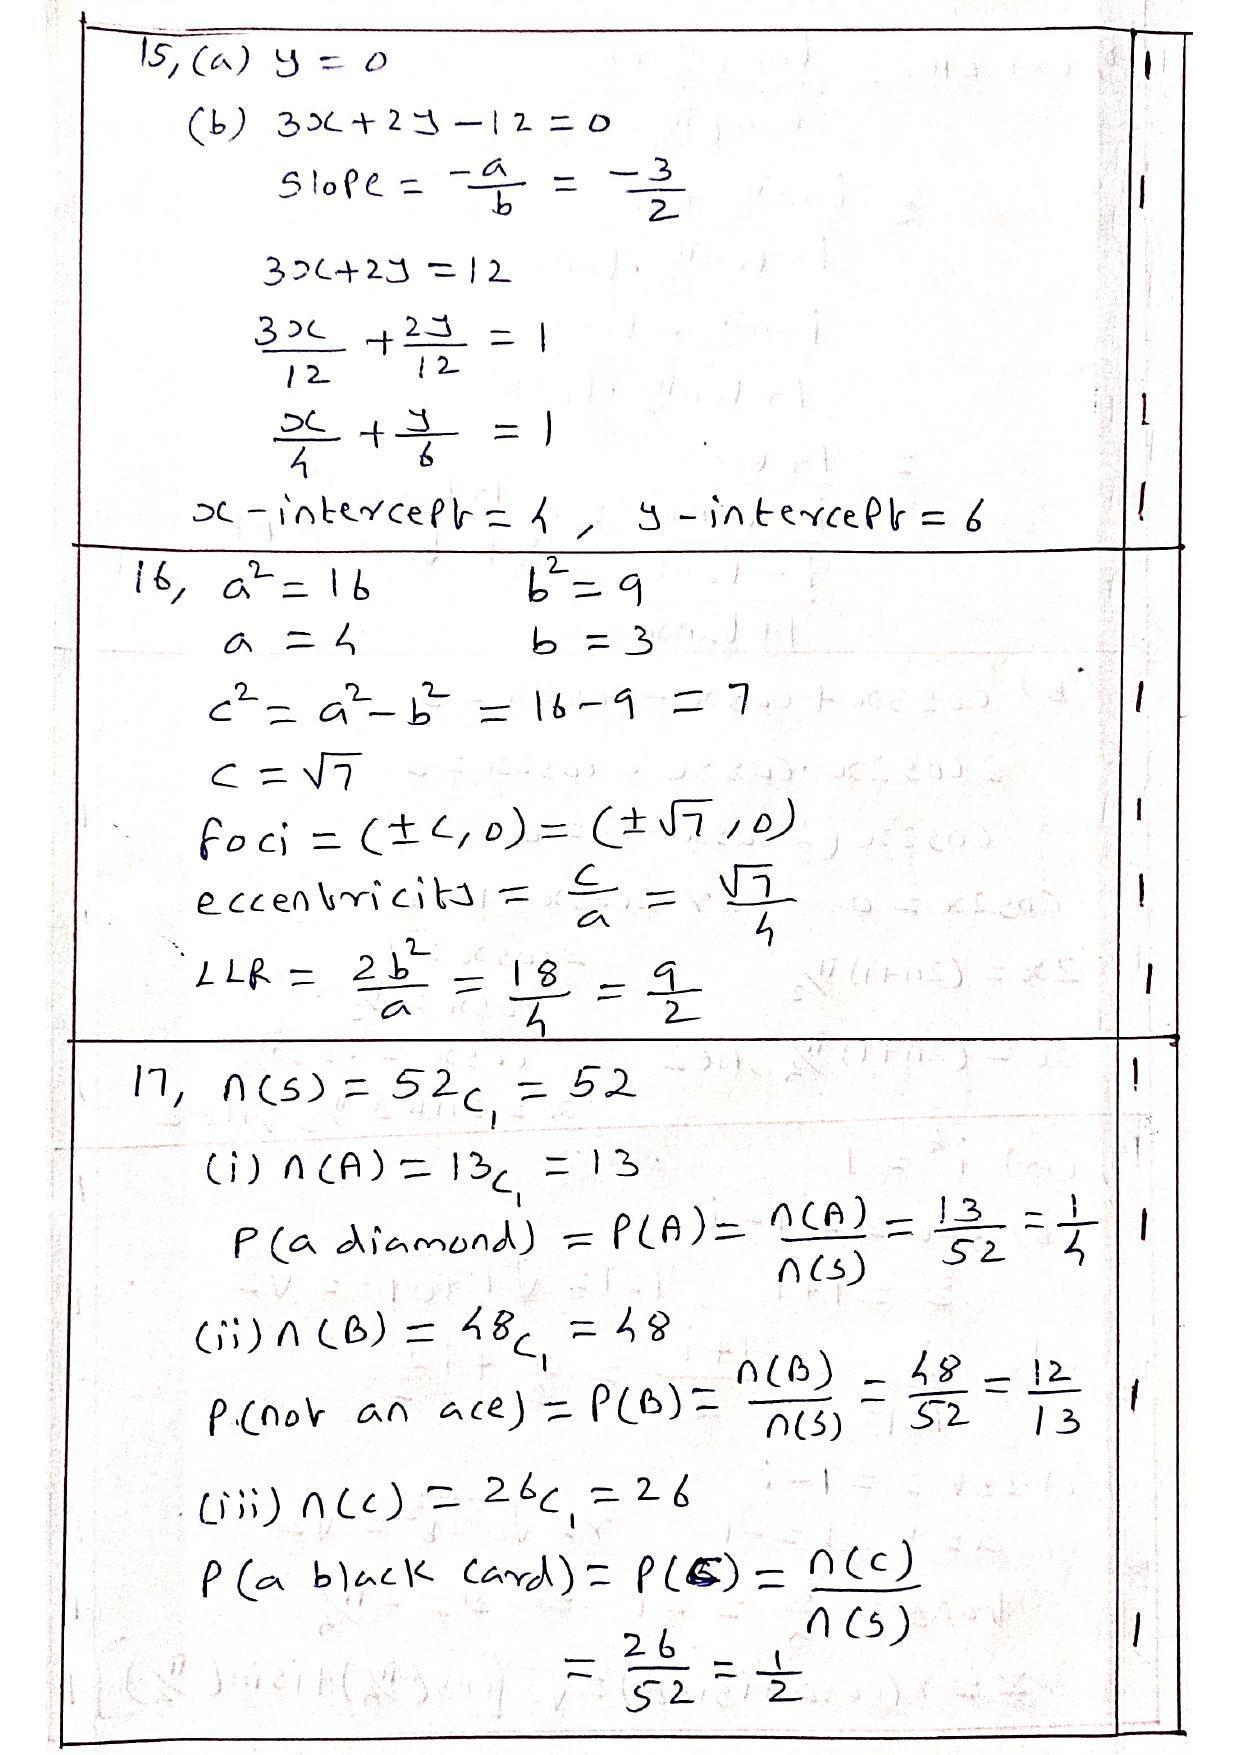 15, (a) y = 0 1
(b) 3x + 2y - 12 = 0
slope = -a/b = -3/2 1
3x + 2y = 12
3x/12 + 2y/12 = 1
x/4 + y/6 = 1 1
x - intercept = 4, y - intercept = 6 1
16, a² = 16 b² = 9
a = 4 b = 3
c² = a² - b² = 16 - 9 = 7 1
c = √7
foci = (±c, 0) = (±√7, 0) 1
eccentricity = c/a = √7/4 1
LLR = 2b²/a = 18/4 = 9/2 1
17, n(s) = 52c₁ = 52 1
(i) n(A) = 13c₁ = 13
P(a diamond) = P(A) = n(A)/n(s) = 13/52 = 1/4 1
(ii) n(B) = 48c₁ = 48
P(not an ace) = P(B) = n(B)/n(s) = 48/52 = 12/13 1
(iii) n(c) = 26c₁ = 26
P(a black card) = P(C) = n(c)/n(s)
= 26/52 = 1/2 1